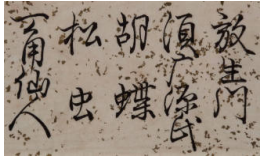 放生川
須广源氏
胡蝶
松虫
一角仙人